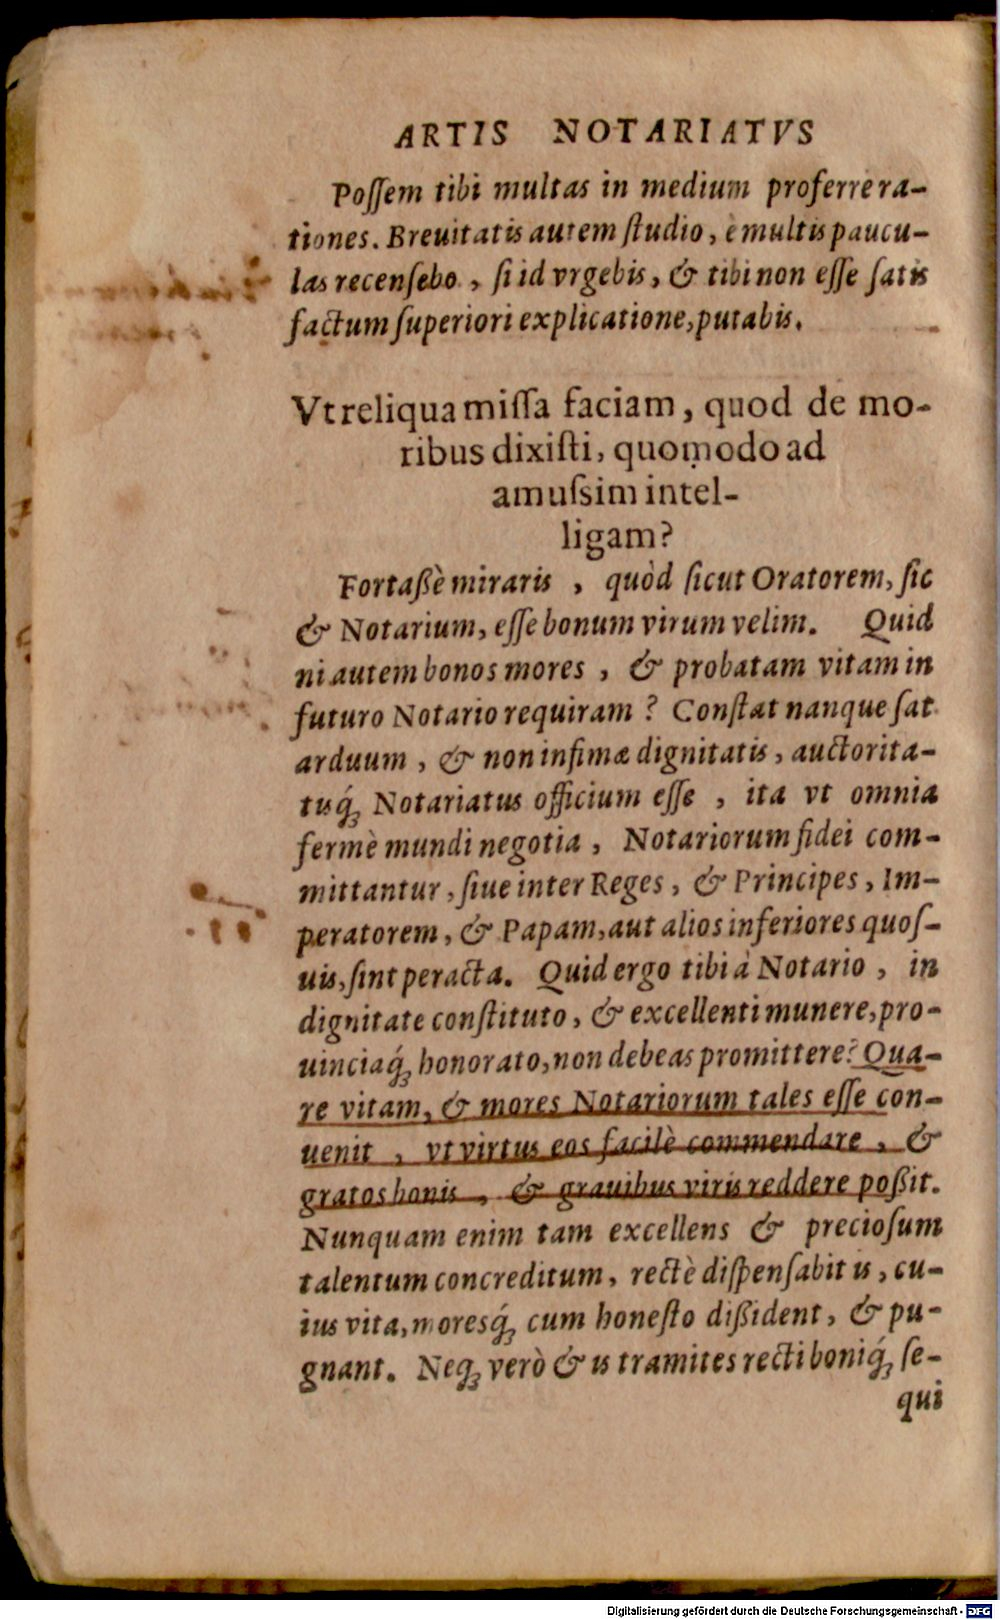 ARTIS NOTARIATVS
Poſſem tibi multas in medium proferre ra-
tiones. Breuitatis autem ſtudio, è multis paucu-
las recenſebo, ſi id vrgebis, & tibi non eſſe ſatis
factum ſuperiori explicatione, putabis.
Vt reliqua miſſa faciam, quod de mo-
ribus dixiſti, quomodo ad
amuſsim intel-
ligam?
Fortaßè miraris, quòd ſicut Oratorem, ſic
& Notarium, eſſe bonum virum velim. Quid
ni autem bonos mores, & probatam vitam in
futuro Notario requiram? Conſtat nanque ſat
arduum, & non infimæ dignitatis, auctorita-
tisq́; Notariatus officium eſſe, ita vt omnia
fermè mundi negotia, Notariorum fidei com-
mittantur, ſiue inter Reges, & Principes, Im-
peratorem, & Papam, aut alios inferiores quoſ-
uis, ſint peracta. Quid ergo tibi à Notario, in
dignitate conſtituto, & excellenti munere, pro-
uinciaq́; honorato, non debeas promittere? Qua-
re vitam, & mores Notariorum tales eſſe con-
uenit, vt virtus eos facilè commendare, &
gratos bonis, & grauibus viris reddere poßit.
Nunquam enim tam excellens & precioſum
talentum concreditum, rectè diſpenſabit is, cu-
ius vita, moresq́; cum honeſto dißident, & pu-
gnant. Neq; verò & is tramites recti boniq́; ſe-
qui
Digitalisierung gefördert durch die Deutsche Forschungsgemeinschaft - DFG